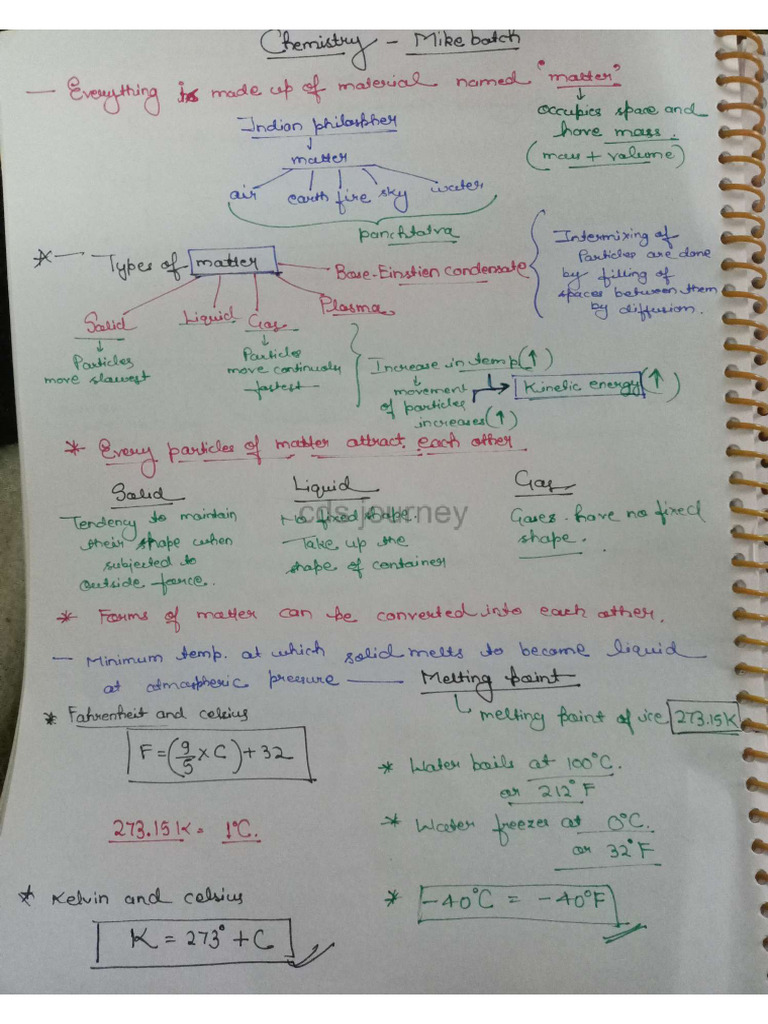 Chemistry - Mike batch
— Everything is made up of material named "matter"
↓
occupies space and
have mass.
(mass + volume)
Indian philospher
↓
matter
air earth fire sky water
panchtatva
* — Types of matter
Base-Einstien condensate
Intermixing of
Particles are done
by filling of
spaces between them
by diffusion.
Solid Liquid Gas Plasma
↓
Particles
move slowest
↓
Particles
move continously
fastest
Increase in temp(↑)
↓
movement
of particles
increases(↑)
Kinetic energy(↑)
* Every particles of matter attract each other
Solid
Tendency to maintain
their shape when
subjected to
outside force.
Liquid
No fixed shape.
Take up the
shape of container
Gas
Gases have no fixed
shape.
cds journey
* Forms of matter can be converted into each other.
— Minimum temp. at which solid melts to become liquid
at atmospheric pressure — Melting point
melting point of ice 273.15K
* Fahrenheit and celsius
F = (9/5 × C) + 32
273.15K = 1°C.
* Water boils at 100°C.
or 212°F
* Water freezes at 0°C.
or 32°F
* Kelvin and celsius
K = 273° + C
* -40°C = -40°F